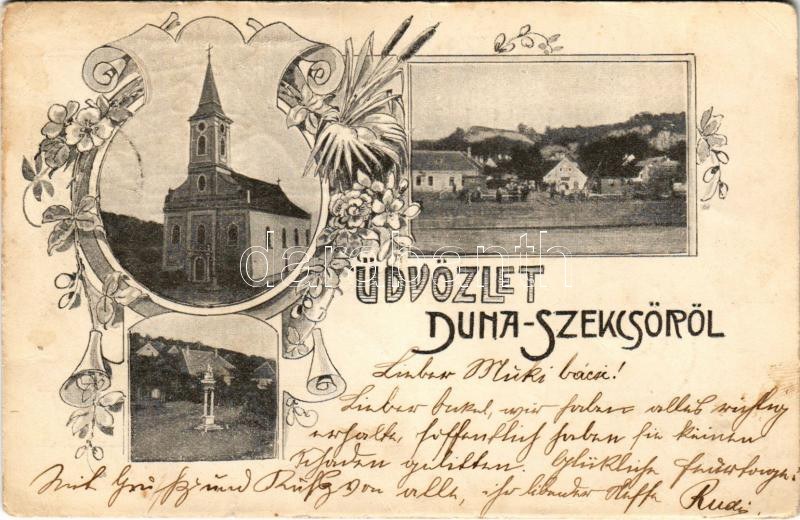 ÜDVÖZLET
DUNA-SZEKCSÖRÖL
darabanth
Lieber Muki bácsi!
Lieber Onkel, wir haben alles richtig
erhalte, höffentlich haben sie keinen
Schaden gelitten. Glükliche Feuertage.
Mit Gruß und Kuß von alle, ihr libender Neffe Rudi